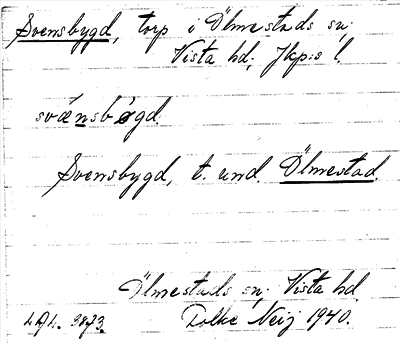 Svensbygd, torp i Ölmestads sn;
Vista hd; Jkp:s l.
svænsbygd.
Svensbygd, t. und. Ölmestad.
Ölmestads sn; Vista hd
L.A.L. 3873. Folke Neij 1940.